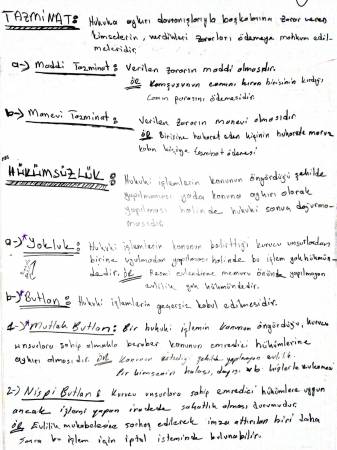 TAZMİNAT: Hukuka aykırı davranışlarıyla başkalarına zarar veren
kimselerin, verdikleri zararları ödemeye mahkum edil-
meleridir.
a-) Maddi Tazminat: Verilen zararın maddi olmasıdır.
ÖR Komşusunun camını kıran birisinin kırdığı
Camın parasını ödemesidir.
b-) Manevi Tazminat: Verilen zararın manevi olmasıdır
ÖR Birisine hakaret eden kişinin hakarete maruz
kalan kişiye tazminat ödemesi
HÜKÜMSÜZLÜK: Hukuki işlemlerin kanunun öngördüğü şekilde
yapılmaması yada kanuna aykırı olarak
yapılması halinde hukuki sonuç doğurma-
masıdır
a-) *Yokluk: Hukuki işlemlerin kanunun belirttiği kurucu unsurlardan
birine uyulmadan yapılması halinde bu işlem yok hükmün-
dedir. ÖR Resmi evlendirme memuru önünde yapılmayan
evlilik yok hükmündedir.
b-) *Butlan: Hukuki işlemlerin geçersiz kabul edilmesidir.
1-) *Mutlak Butlan: Bir hukuki işlemin kanunun öngördüğü, kurucu
unsurlara sahip olmakla beraber kanunun emredici hükümlerine
aykırı olmasıdır. ÖR Kanunun şekilde yapılmayan evlilik.
Bir kimsenin halası, dayısı vb. kişilerle evlenmesi
2-) Nispi Butlan: Kurucu unsurlara sahip emredici hükümlere uygun
ancak işlemi yapan iradede sakatlık olması durumudur.
ÖR Evlilik mukavelesine sarhoş edilerek imza attırılan biri daha
sonra bu işlem için iptal isteminde bulunabilir.